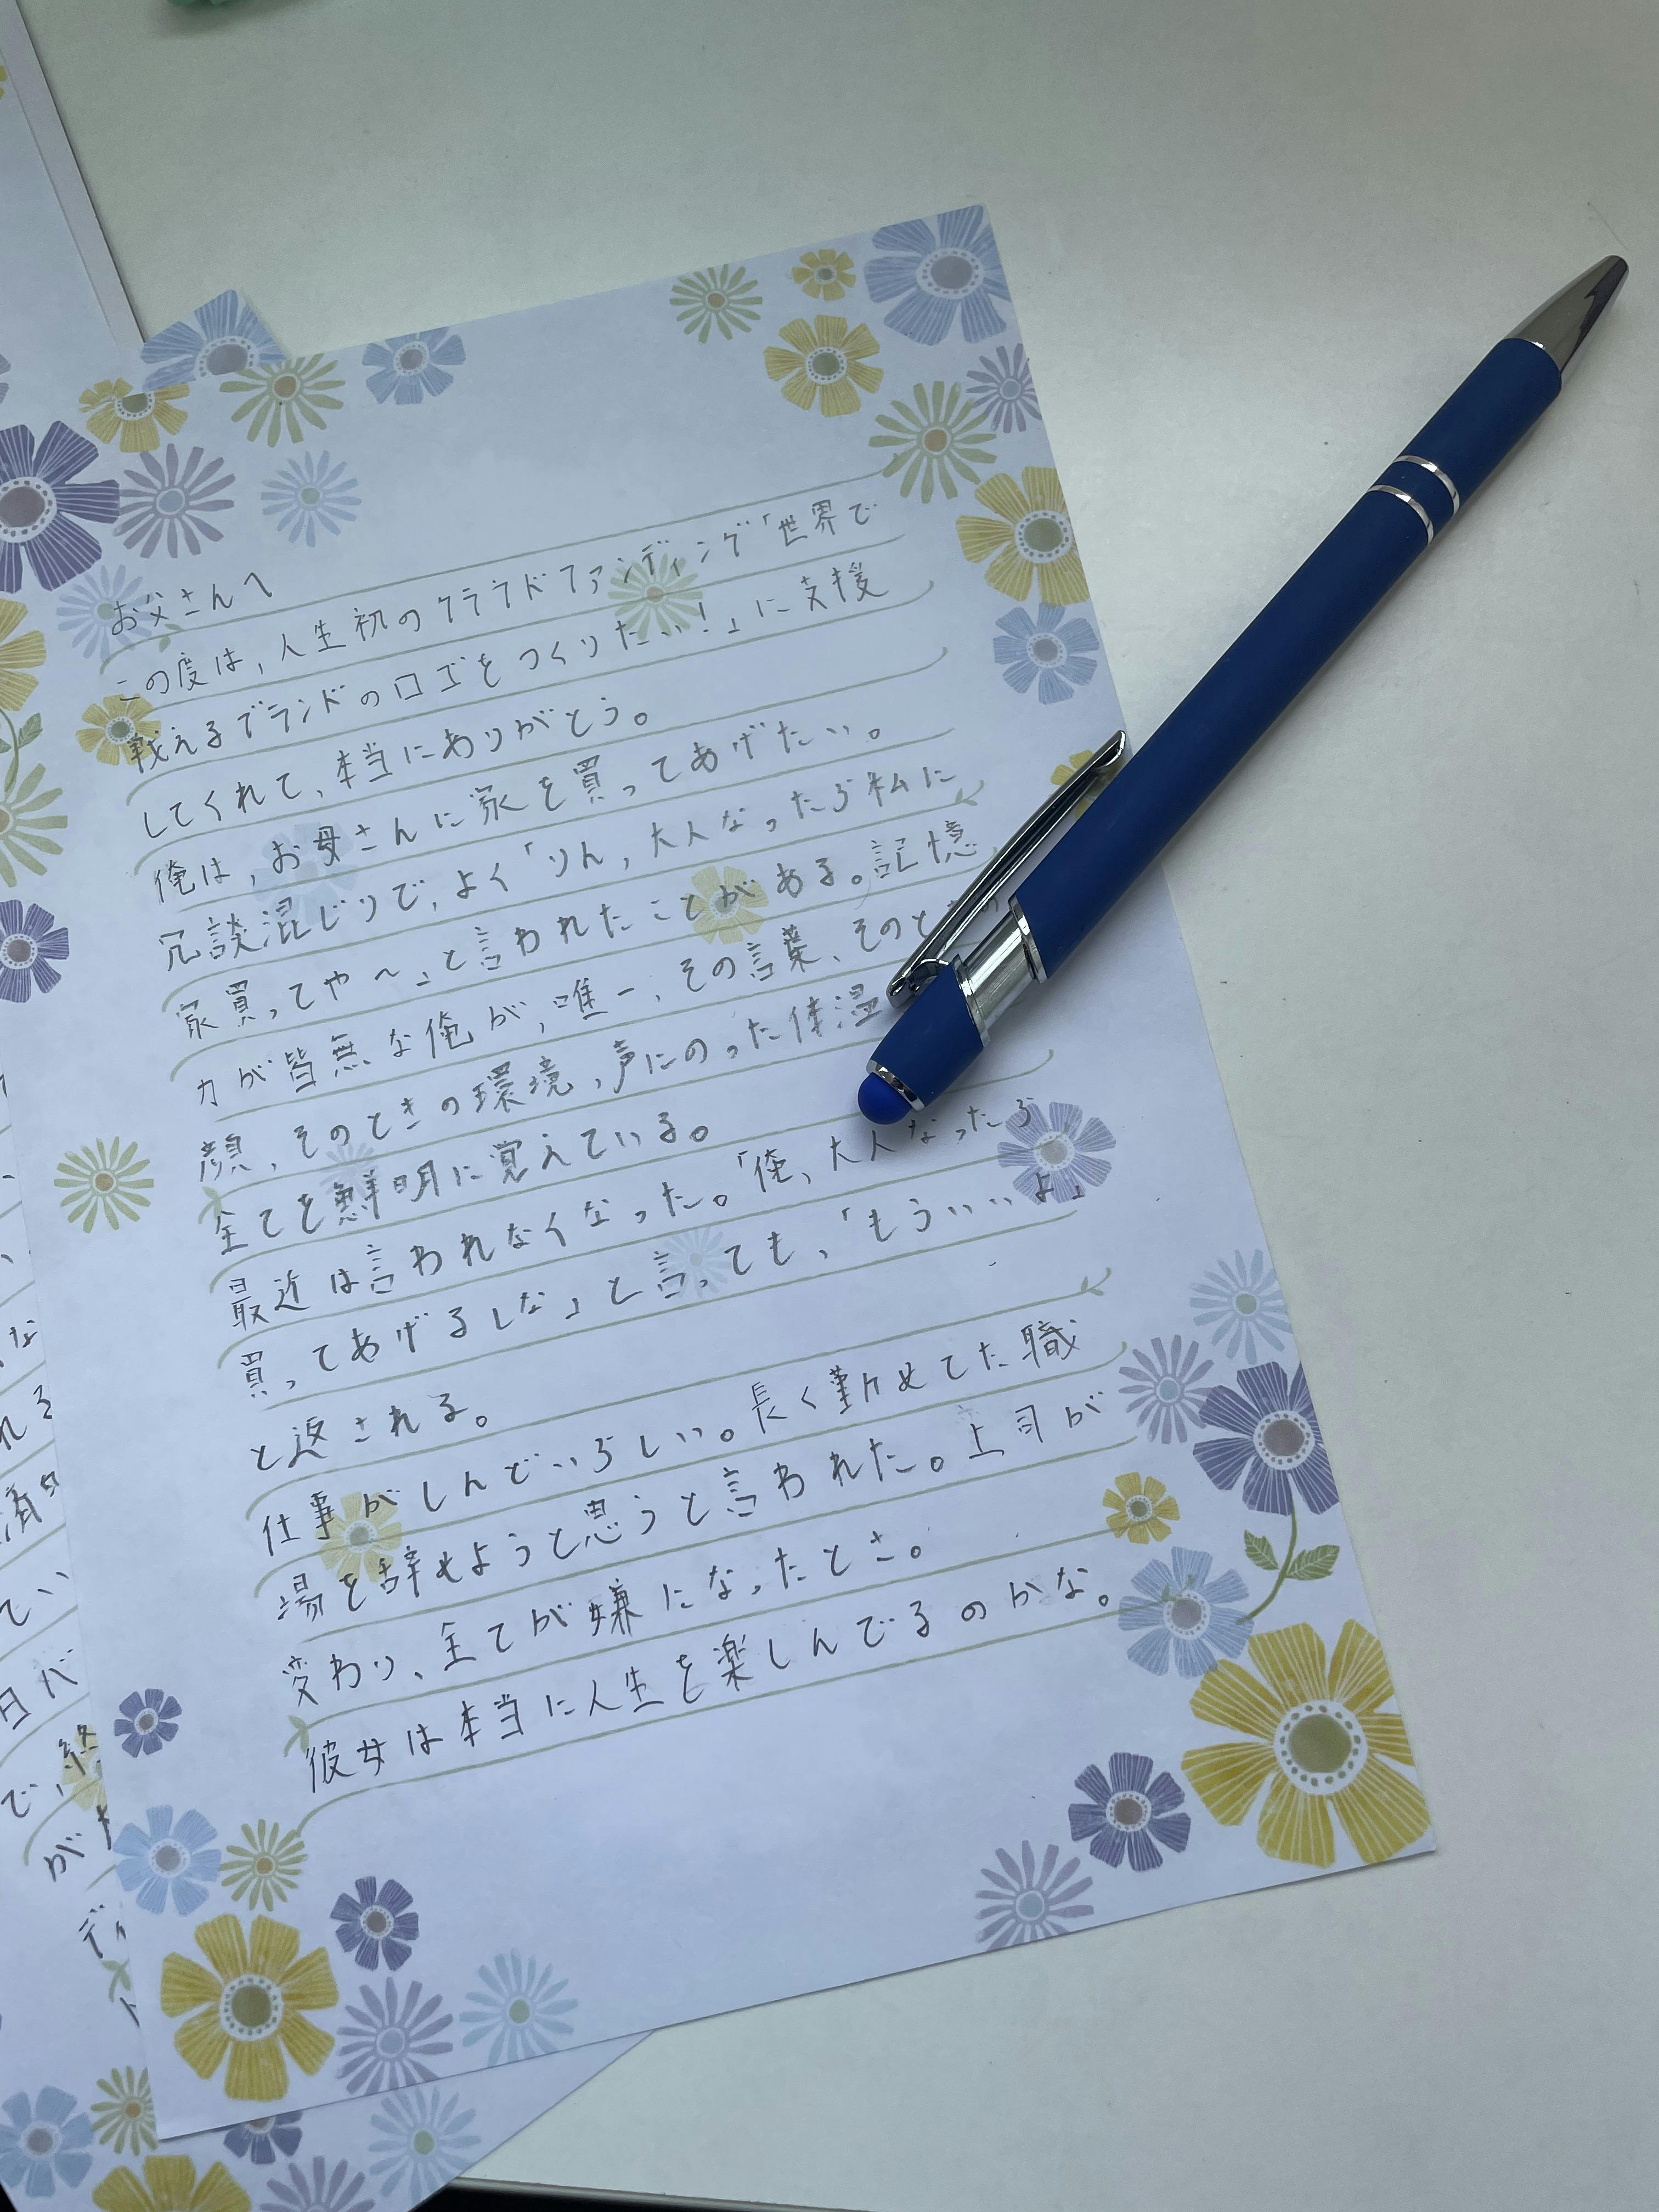 お父さんへ
この度は,人生初のクラウドファンディング「世界で
戦えるブランドのロゴをつくりたい!」に支援
してくれて、本当にありがとう。
俺は,お母さんに家を買ってあげたい。
冗談混じりで,よく「りん,大人なったら私に
家買ってや〜」と言われたことがある。記憶
力が皆無な俺が,唯一,その言葉、そのときの
顔,そのときの環境,声にのった体温
全てを鮮明に覚えている。
最近は言われなくなった。「俺、大人なったら
買ってあげるしな」と言っても、「もういいよ」
と返される。
仕事がしんどいらしい。長く勤めてた職
場を辞めようと思うと言われた。上司が
変わり、全てが嫌になったとさ。
彼女は本当に人生を楽しんでるのかな。
な
れる
済
てい
日代
で,終
が
デ